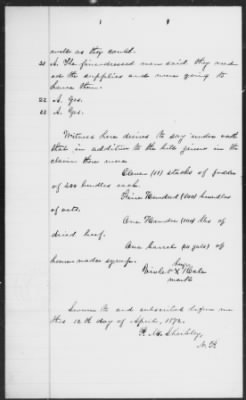 well as they could.
21 A. The fine dressed man said they need
ed the supplies and were going to
have them.
22 A. Yes.
23 A. Yes.
Witness here desires to say under oath
that in addition to the bill given in the
claim there were
Eleven (11) stacks of fodder
of 200 bundles each.
Five Hundred (500) bundles
of oats.
One Hundred (100) lbs of
dried beef.
One barrel (40 gals) of
home made syrup.
his
X Hale
mark
Sworn to and subscribed before me
this 12th day of April, 1872.
N. P.